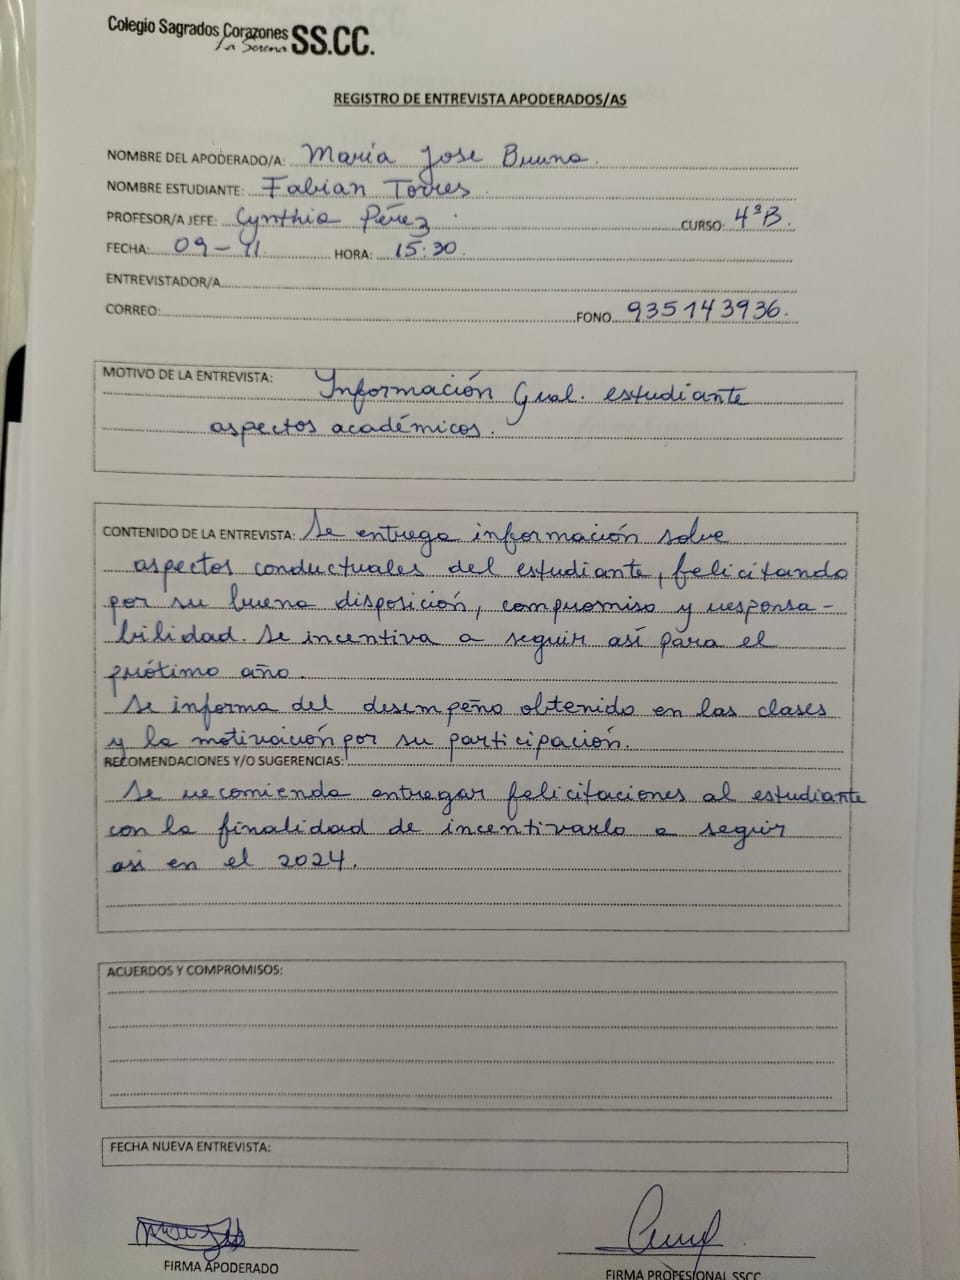 Colegio Sagrados Corazones SS.CC.
La Serena
REGISTRO DE ENTREVISTA APODERADOS/AS
NOMBRE DEL APODERADO/A: María Jose Bruna
NOMBRE ESTUDIANTE: Fabian Torres
PROFESOR/A JEFE: Cynthia Pérez CURSO: 4°B.
FECHA: 09-11 HORA: 15:30
ENTREVISTADOR/A
CORREO: FONO 935143936.
MOTIVO DE LA ENTREVISTA: Información Gral. estudiante
aspectos académicos.
CONTENIDO DE LA ENTREVISTA: Se entrega información sobre
aspectos conductuales del estudiante, felicitando
por su buena disposición, compromiso y responsa-
bilidad. Se incentiva a seguir así para el
próximo año.
Se informa del desempeño obtenido en las clases
y la motivación por su participación.
RECOMENDACIONES Y/O SUGERENCIAS:
Se recomienda entregar felicitaciones al estudiante
con la finalidad de incentivarlo a seguir
asi en el 2024.
ACUERDOS Y COMPROMISOS:
FECHA NUEVA ENTREVISTA:
FIRMA APODERADO
FIRMA PROFESIONAL SSCC